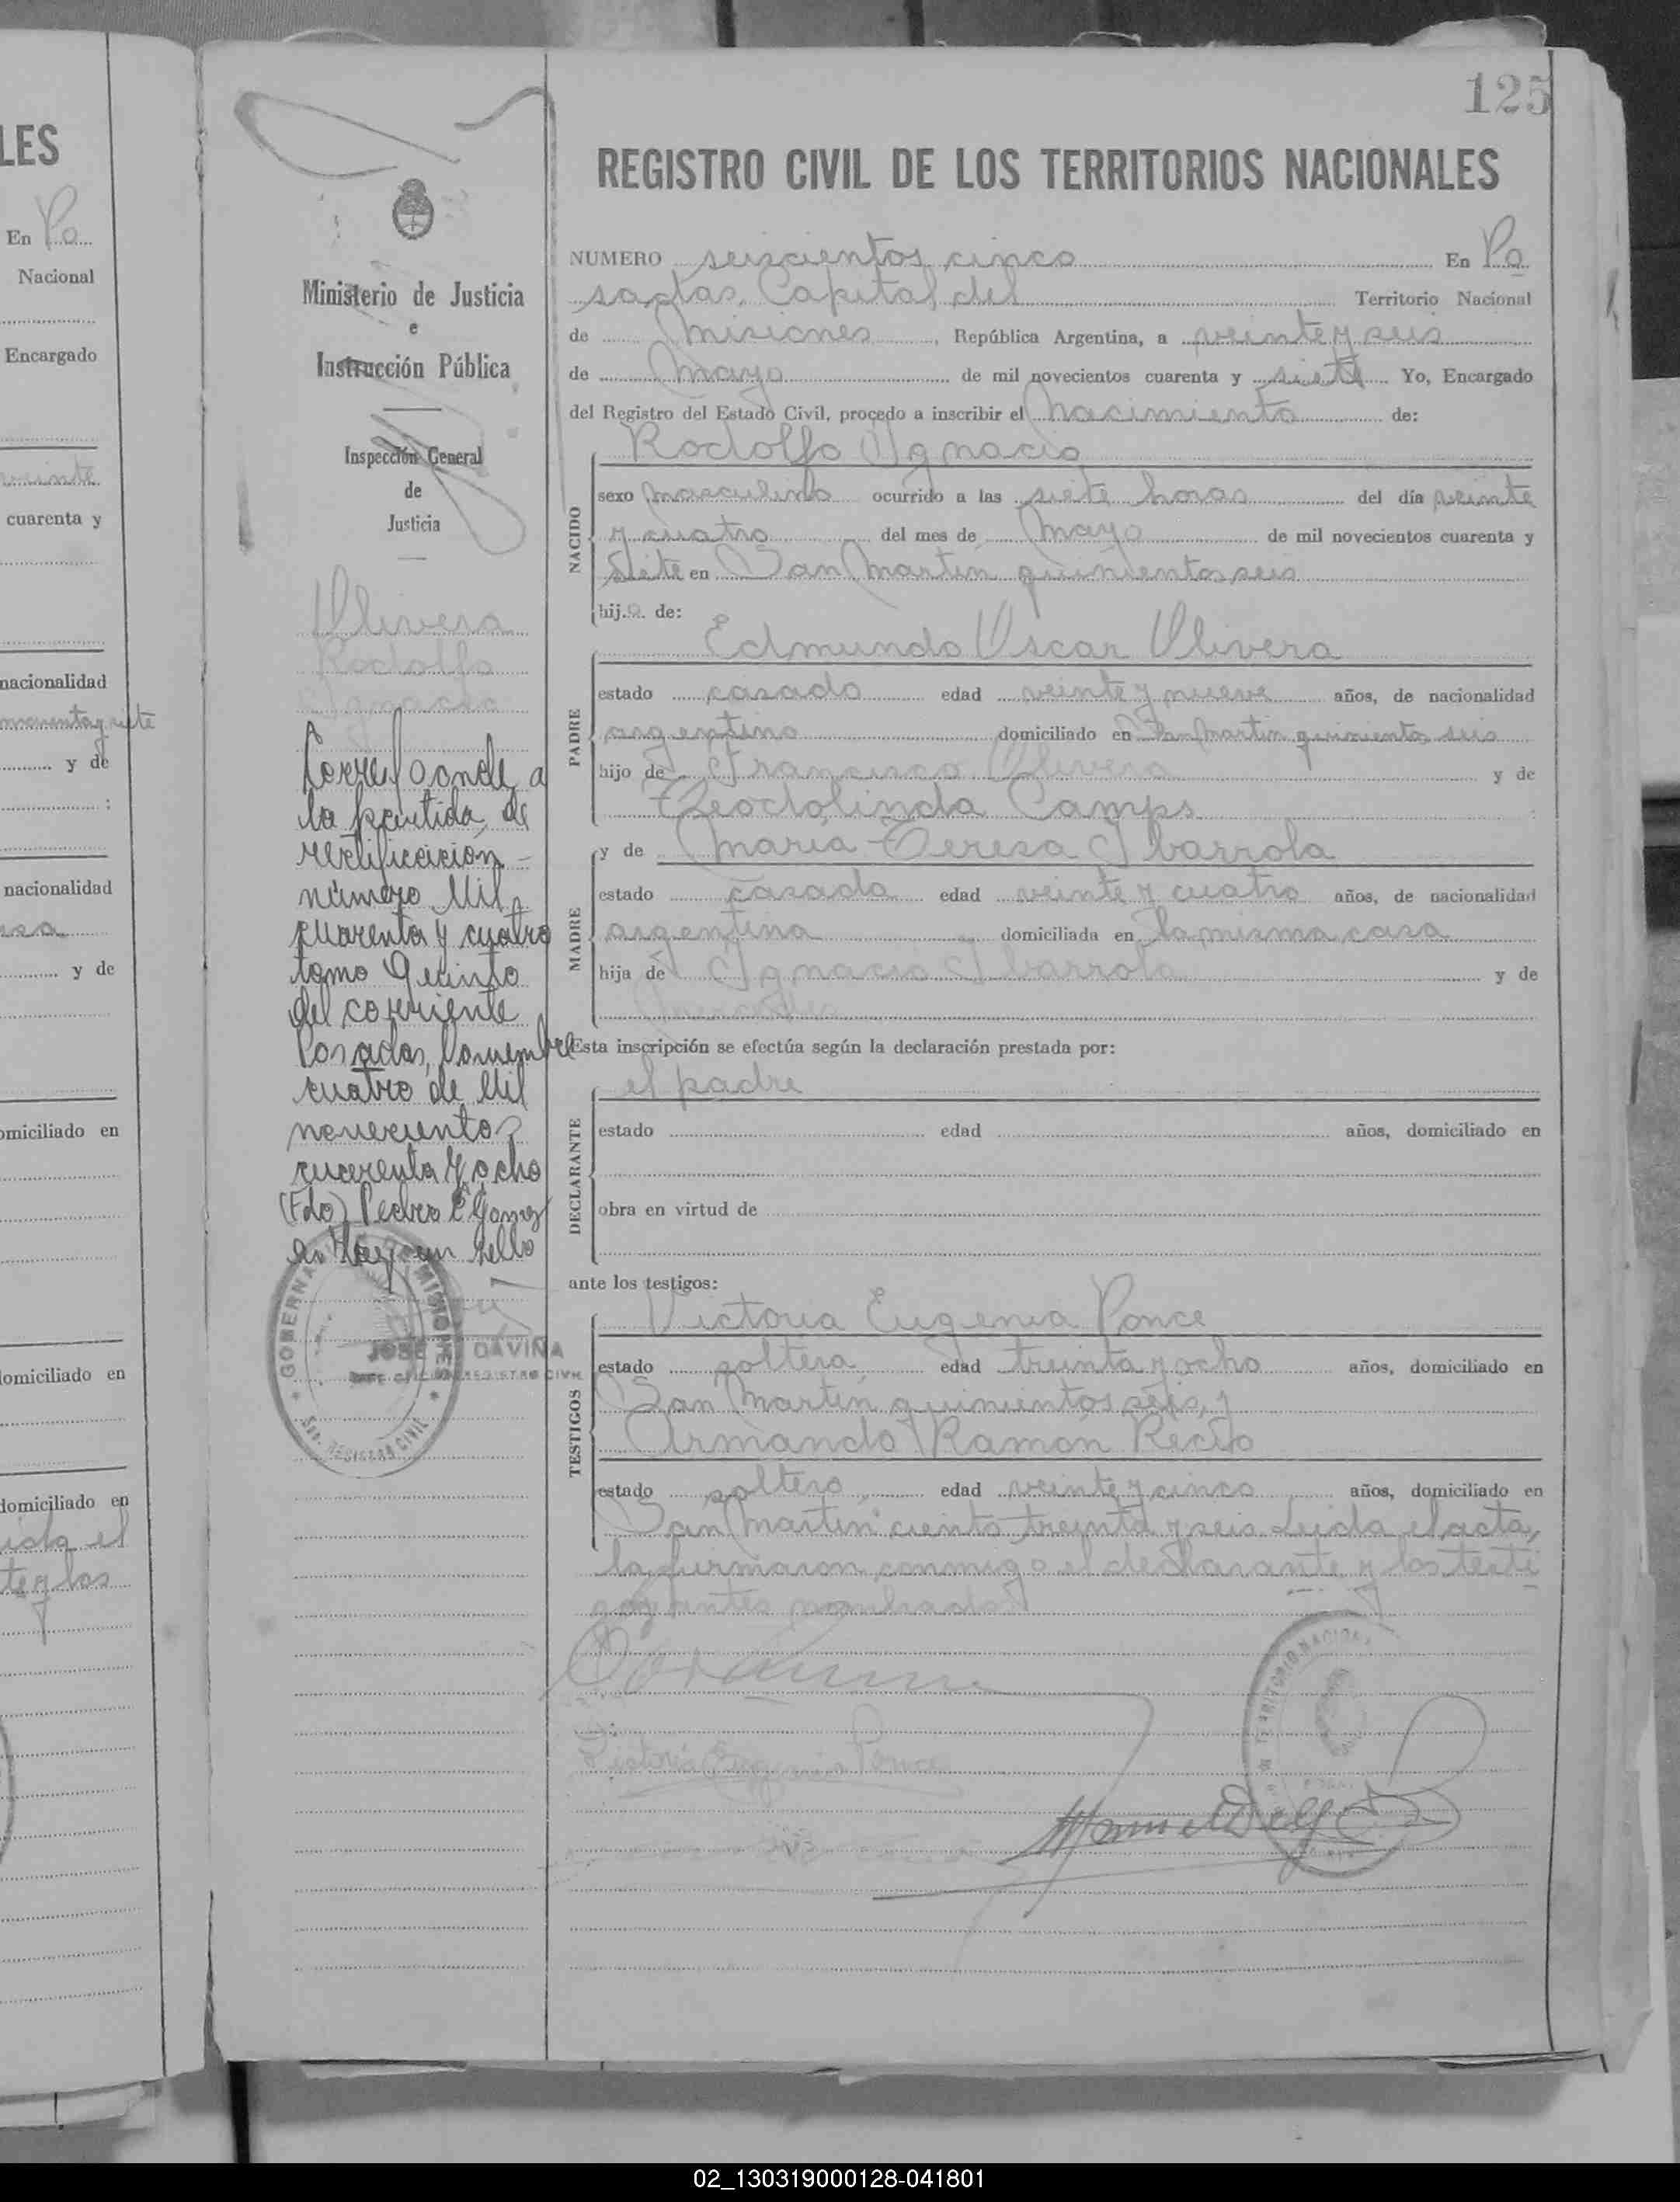 LES
En Po
Nacional
Encargado
veinte
cuarenta y
nacionalidad
y de
:
nacionalidad
y de
domiciliado en
domiciliado en
domiciliado en
el
te y los
125
REGISTRO CIVIL DE LOS TERRITORIOS NACIONALES
Ministerio de Justicia
e
Instrucción Pública
Inspección General
de
Justicia
Olivera
Rodolfo
Ignacio
Corresponde a
la partida de
rectificación
número Mil
cuarenta y cuatro
tomo Quinto
del corriente
Posadas, Noviembre
cuatro de Mil
novecientos
cuarenta y ocho
(Fdo) Pedro E Gomez
Hay un sello
GOBERNA MISIONES
REGISTRO CIVIL
JOSE DAVIÑA
REGISTRO CIVIL
NUMERO seiscientos cinco En Po
sadas, Capital del Territorio Nacional
de Misiones, República Argentina, a veinte y seis
de Mayo de mil novecientos cuarenta y siete Yo, Encargado
del Registro del Estado Civil, procedo a inscribir el Nacimiento de:
NACIDO
Rodolfo Ignacio
sexo masculino ocurrido a las siete horas del día veinte
y cuatro del mes de Mayo de mil novecientos cuarenta y
siete en San Martín quinientos seis
hijo de:
PADRE
Edmundo Oscar Olivera
estado casado edad veinte y nueve años, de nacionalidad
argentino domiciliado en San Martin quinientos seis
hijo de Francisco Olivera y de
Teodolinda Camps
MADRE
y de María Teresa Ibarrola
estado casada edad veinte y cuatro años, de nacionalidad
argentina domiciliada en la misma casa
hija de Ignacio Ibarrola y de
Esta inscripción se efectúa según la declaración prestada por:
DECLARANTE
el padre
estado edad años, domiciliado en
obra en virtud de
ante los testigos:
TESTIGOS
Victoria Eugenia Ponce
estado soltera edad treinta y ocho años, domiciliado en
San Martín quinientos seis, y
Armando Ramón Recio
estado soltero edad veinte y cinco años, domiciliado en
San Martín ciento treinta y seis Leida el acta,
la firmaron conmigo el declarante y los testi
gos antes nombrados
Victoria Eugenia Ponce
TERRITORIO NACIONAL
02_130319000128-041801